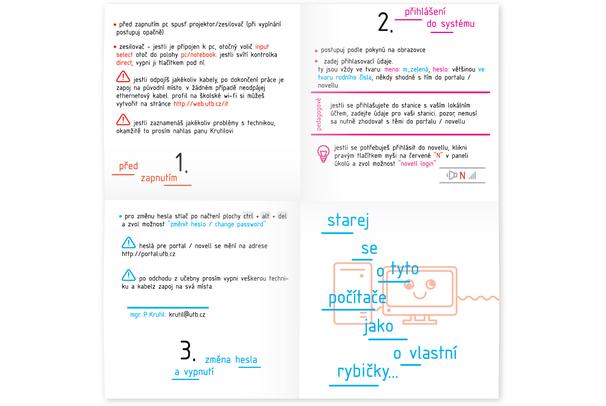 před zapnutím pc spusť projektor/zesilovač (při vypínání
postupuj opačně)
zesilovač - jestli je připojen k pc, otočný volič input
select otoč do polohy pc/notebook. jestli svítí kontrolka
direct, vypni ji tlačítkem pod ní.
jestli odpojíš jakékoliv kabely, po dokončení práce je
zapoj na původní místo. v žádném případě neodpájej
ethernetový kabel. profil na školské wi-fi si můžeš
vytvořit na stránce http://web.utb.cz/it
jestli zaznamenáš jakékoliv problémy s technikou,
okamžitě to prosím nahlas panu Kruhlovi
1.
před
zapnutím
2.
přihlášení
do systému
postupuj podle pokynů na obrazovce
zadej přihlasovací údaje.
ty jsou vždy ve tvaru meno: m_zelená, heslo: většinou ve
tvaru rodního čísla, někdy shodně s tím do portalu /
novellu
pedagogové
jestli se přihlašujete do stanice s vaším lokálním
účtem, zadejte údaje pro vaši stanici. pozor, nemusí
sa nutně zhodovat s těmi do portalu / novellu
jestli se potřebuješ přihlásit do novellu, klikni
pravým tlačítkem myši na červené "N" v paneli
úkolů a zvol možnost "novell login"
N
pro změnu hesla stlač po načtení plochy ctrl + alt + del
a zvol možnost "změnit heslo / change password"
heslá pre portal / novell se mění na adrese
http://portal.utb.cz
po odchodu z učebny prosím vypni veškerou techni-
ku a kabelz zapoj na svá místa.
mgr. P. Kruhl: kruhl@utb.cz
3.
změna hesla
a vypnutí
starej
se
o tyto
počítače
jako
o vlastní
rybičky...